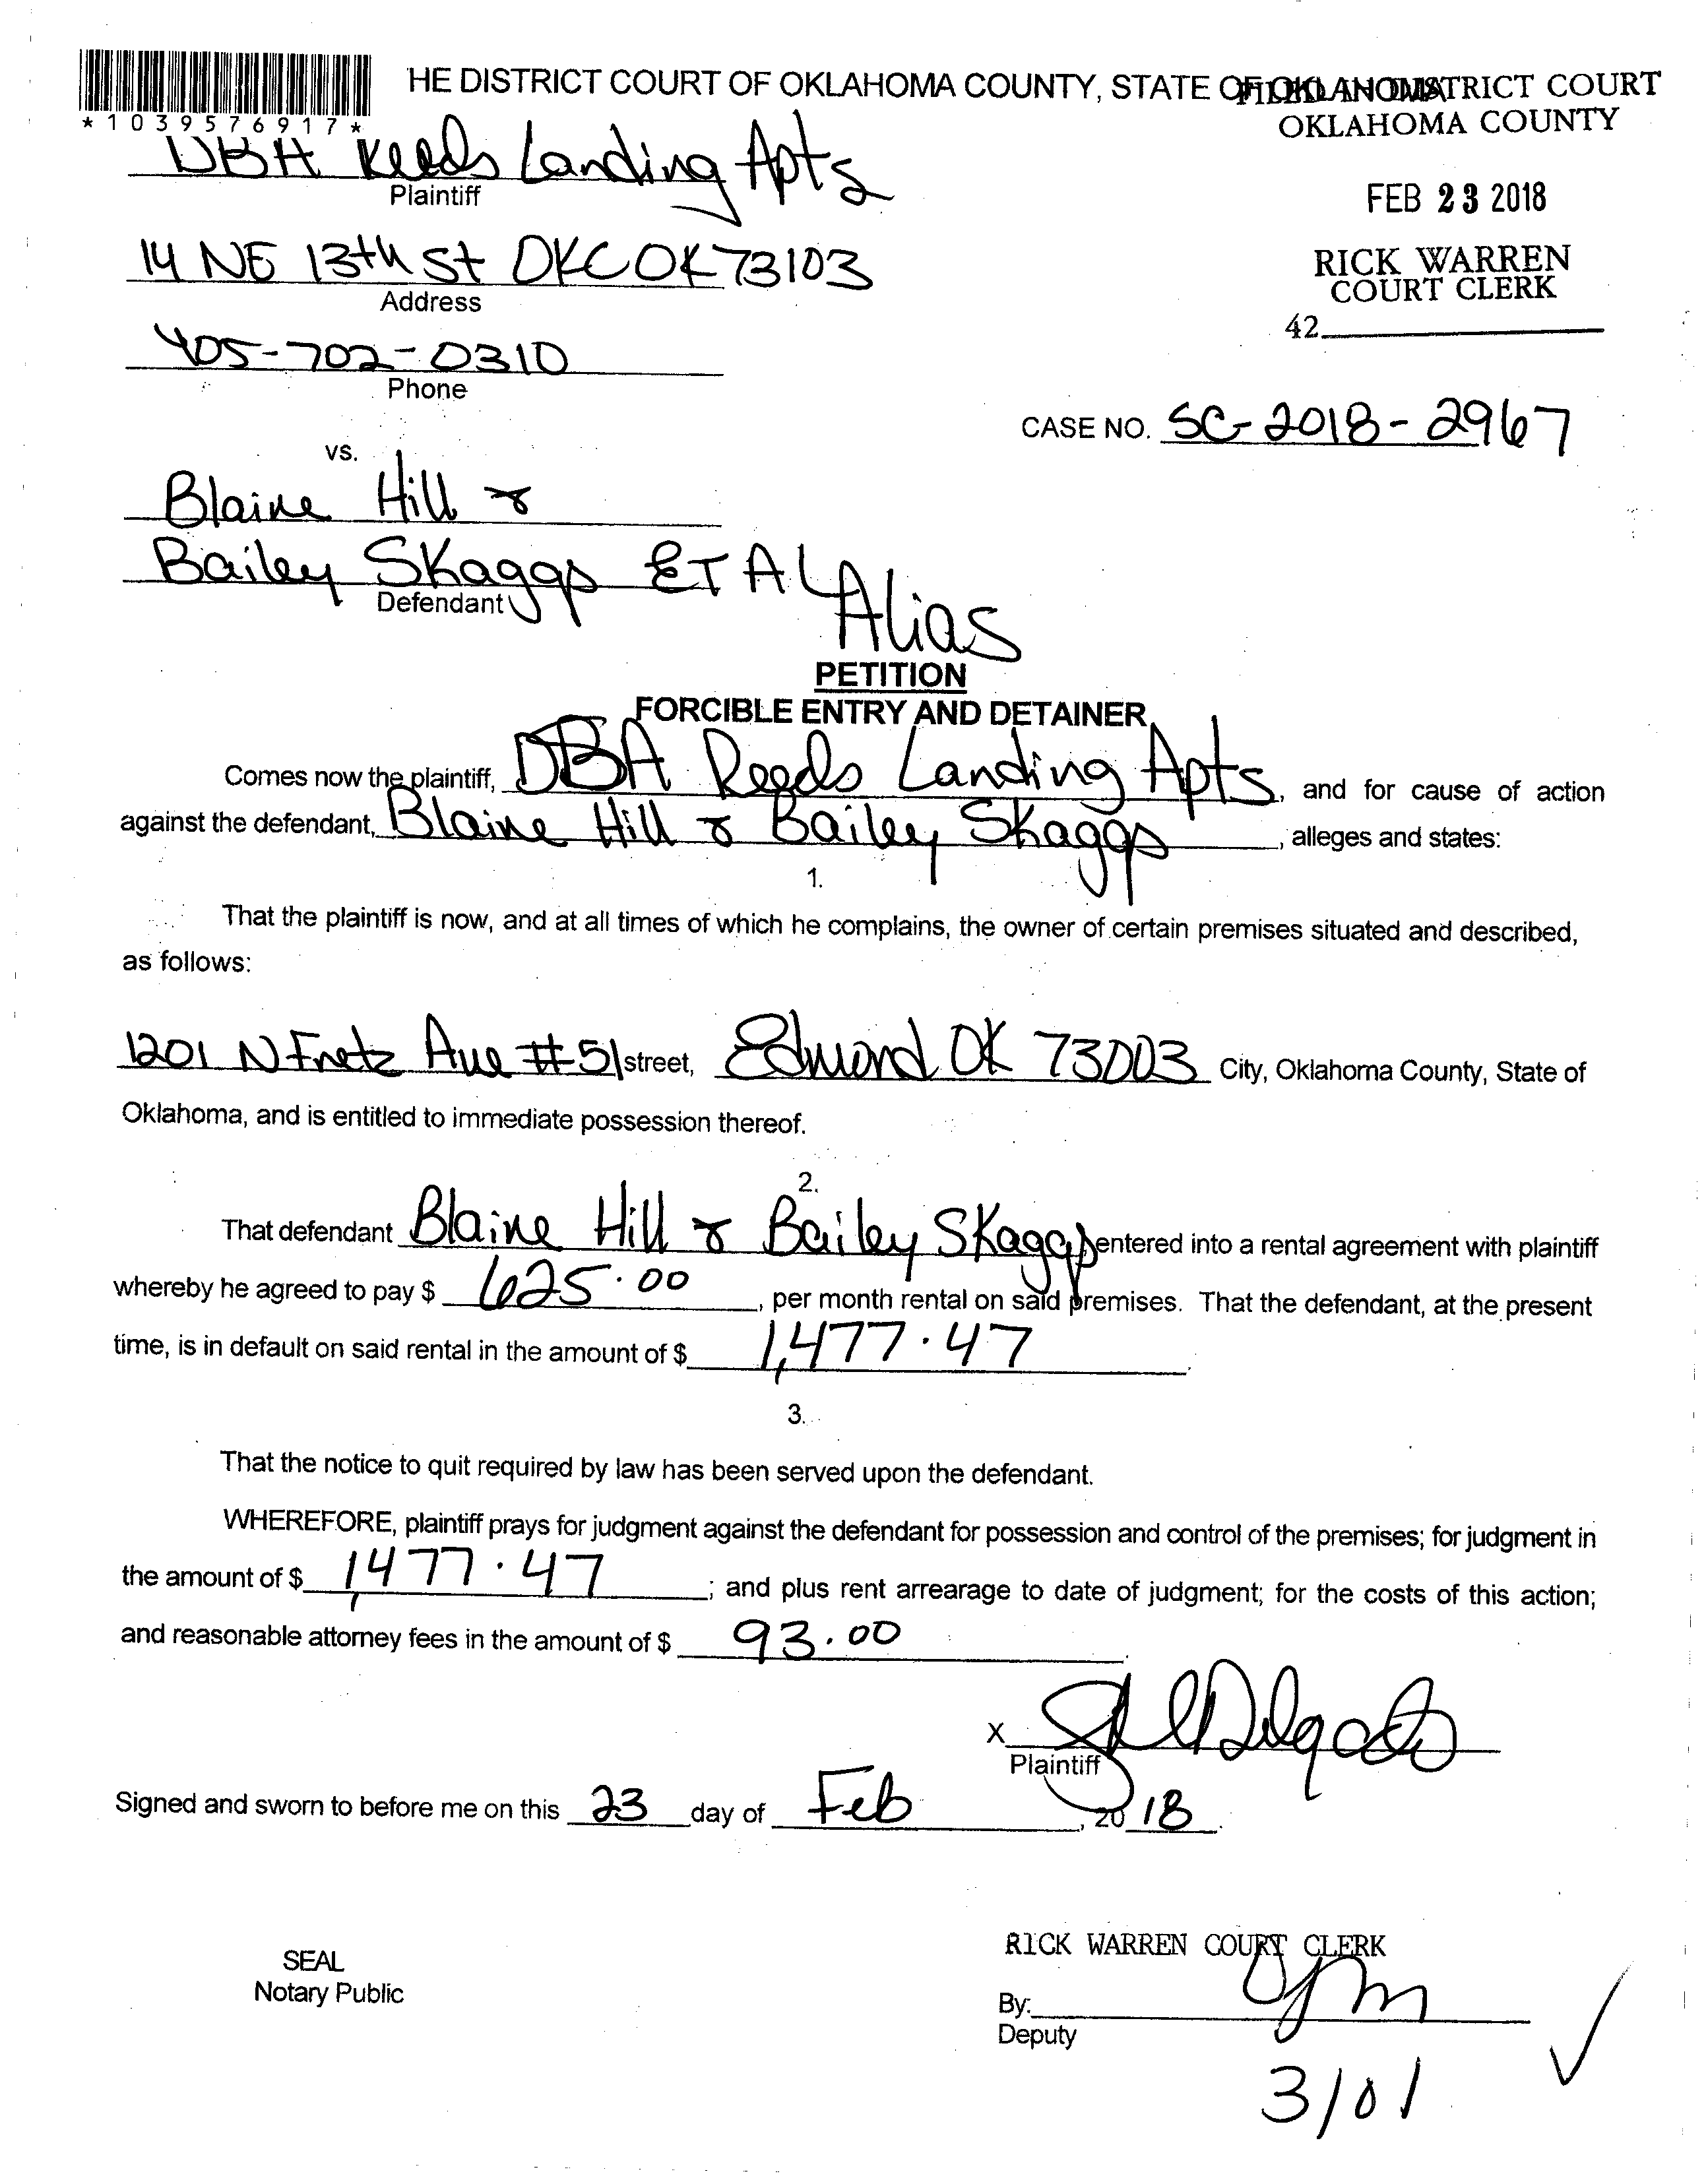 HE DISTRICT COURT OF OKLAHOMA COUNTY, STATE OF OKLAHOMA
FILED IN DISTRICT COURT
OKLAHOMA COUNTY
*1039576917*
DBA Reeds Landing Apts
Plaintiff
FEB 23 2018
14 NE 13th St OKC OK 73103
Address
RICK WARREN
COURT CLERK
42
405-702-0310
Phone
CASE NO. SC-2018-2967
vs.
Blaine Hill &
Bailey Skaggs ET AL
Defendant
Alias
PETITION
FORCIBLE ENTRY AND DETAINER
Comes now the plaintiff, DBA Reeds Landing Apts, and for cause of action
against the defendant, Blaine Hill & Bailey Skaggs, alleges and states:
1.
That the plaintiff is now, and at all times of which he complains, the owner of certain premises situated and described,
as follows:
1201 N Fretz Ave #51 street, Edmond OK 73003 City, Oklahoma County, State of
Oklahoma, and is entitled to immediate possession thereof.
2.
That defendant Blaine Hill & Bailey Skaggs entered into a rental agreement with plaintiff
whereby he agreed to pay $ 625.00, per month rental on said premises. That the defendant, at the present
time, is in default on said rental in the amount of $ 1,477.47.
3.
That the notice to quit required by law has been served upon the defendant.
WHEREFORE, plaintiff prays for judgment against the defendant for possession and control of the premises; for judgment in
the amount of $ 1,477.47; and plus rent arrearage to date of judgment; for the costs of this action;
and reasonable attorney fees in the amount of $ 93.00.
X Delgado
Plaintiff
Signed and sworn to before me on this 23 day of Feb, 2018.
RICK WARREN COURT CLERK
SEAL
Notary Public
By:
Deputy
3/01